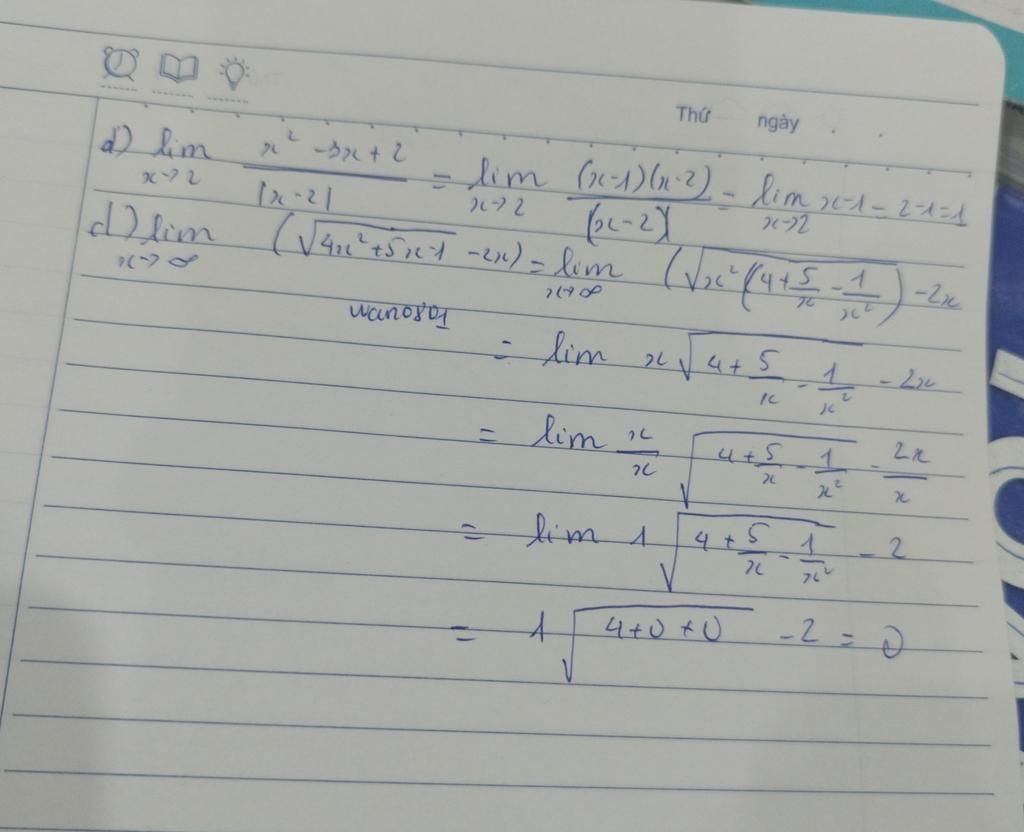 Thứ ngày . .
d) lim x→2 x² -3x + 2 / |x - 2| = lim x→2 (x-1)(x-2) / (x-2) = lim x→2 x-1 = 2-1=1
d) lim x→∞ (√4x²+5x-1 -2x) = lim x→∞ (√x²(4+5/x - 1/x²) -2x
wano801
= lim x√4+5/x - 1/x² -2x
= lim x/x √4+5/x - 1/x² - 2x/x
= lim 1√4+5/x - 1/x² - 2
= 1√4+0+0 -2 = 0